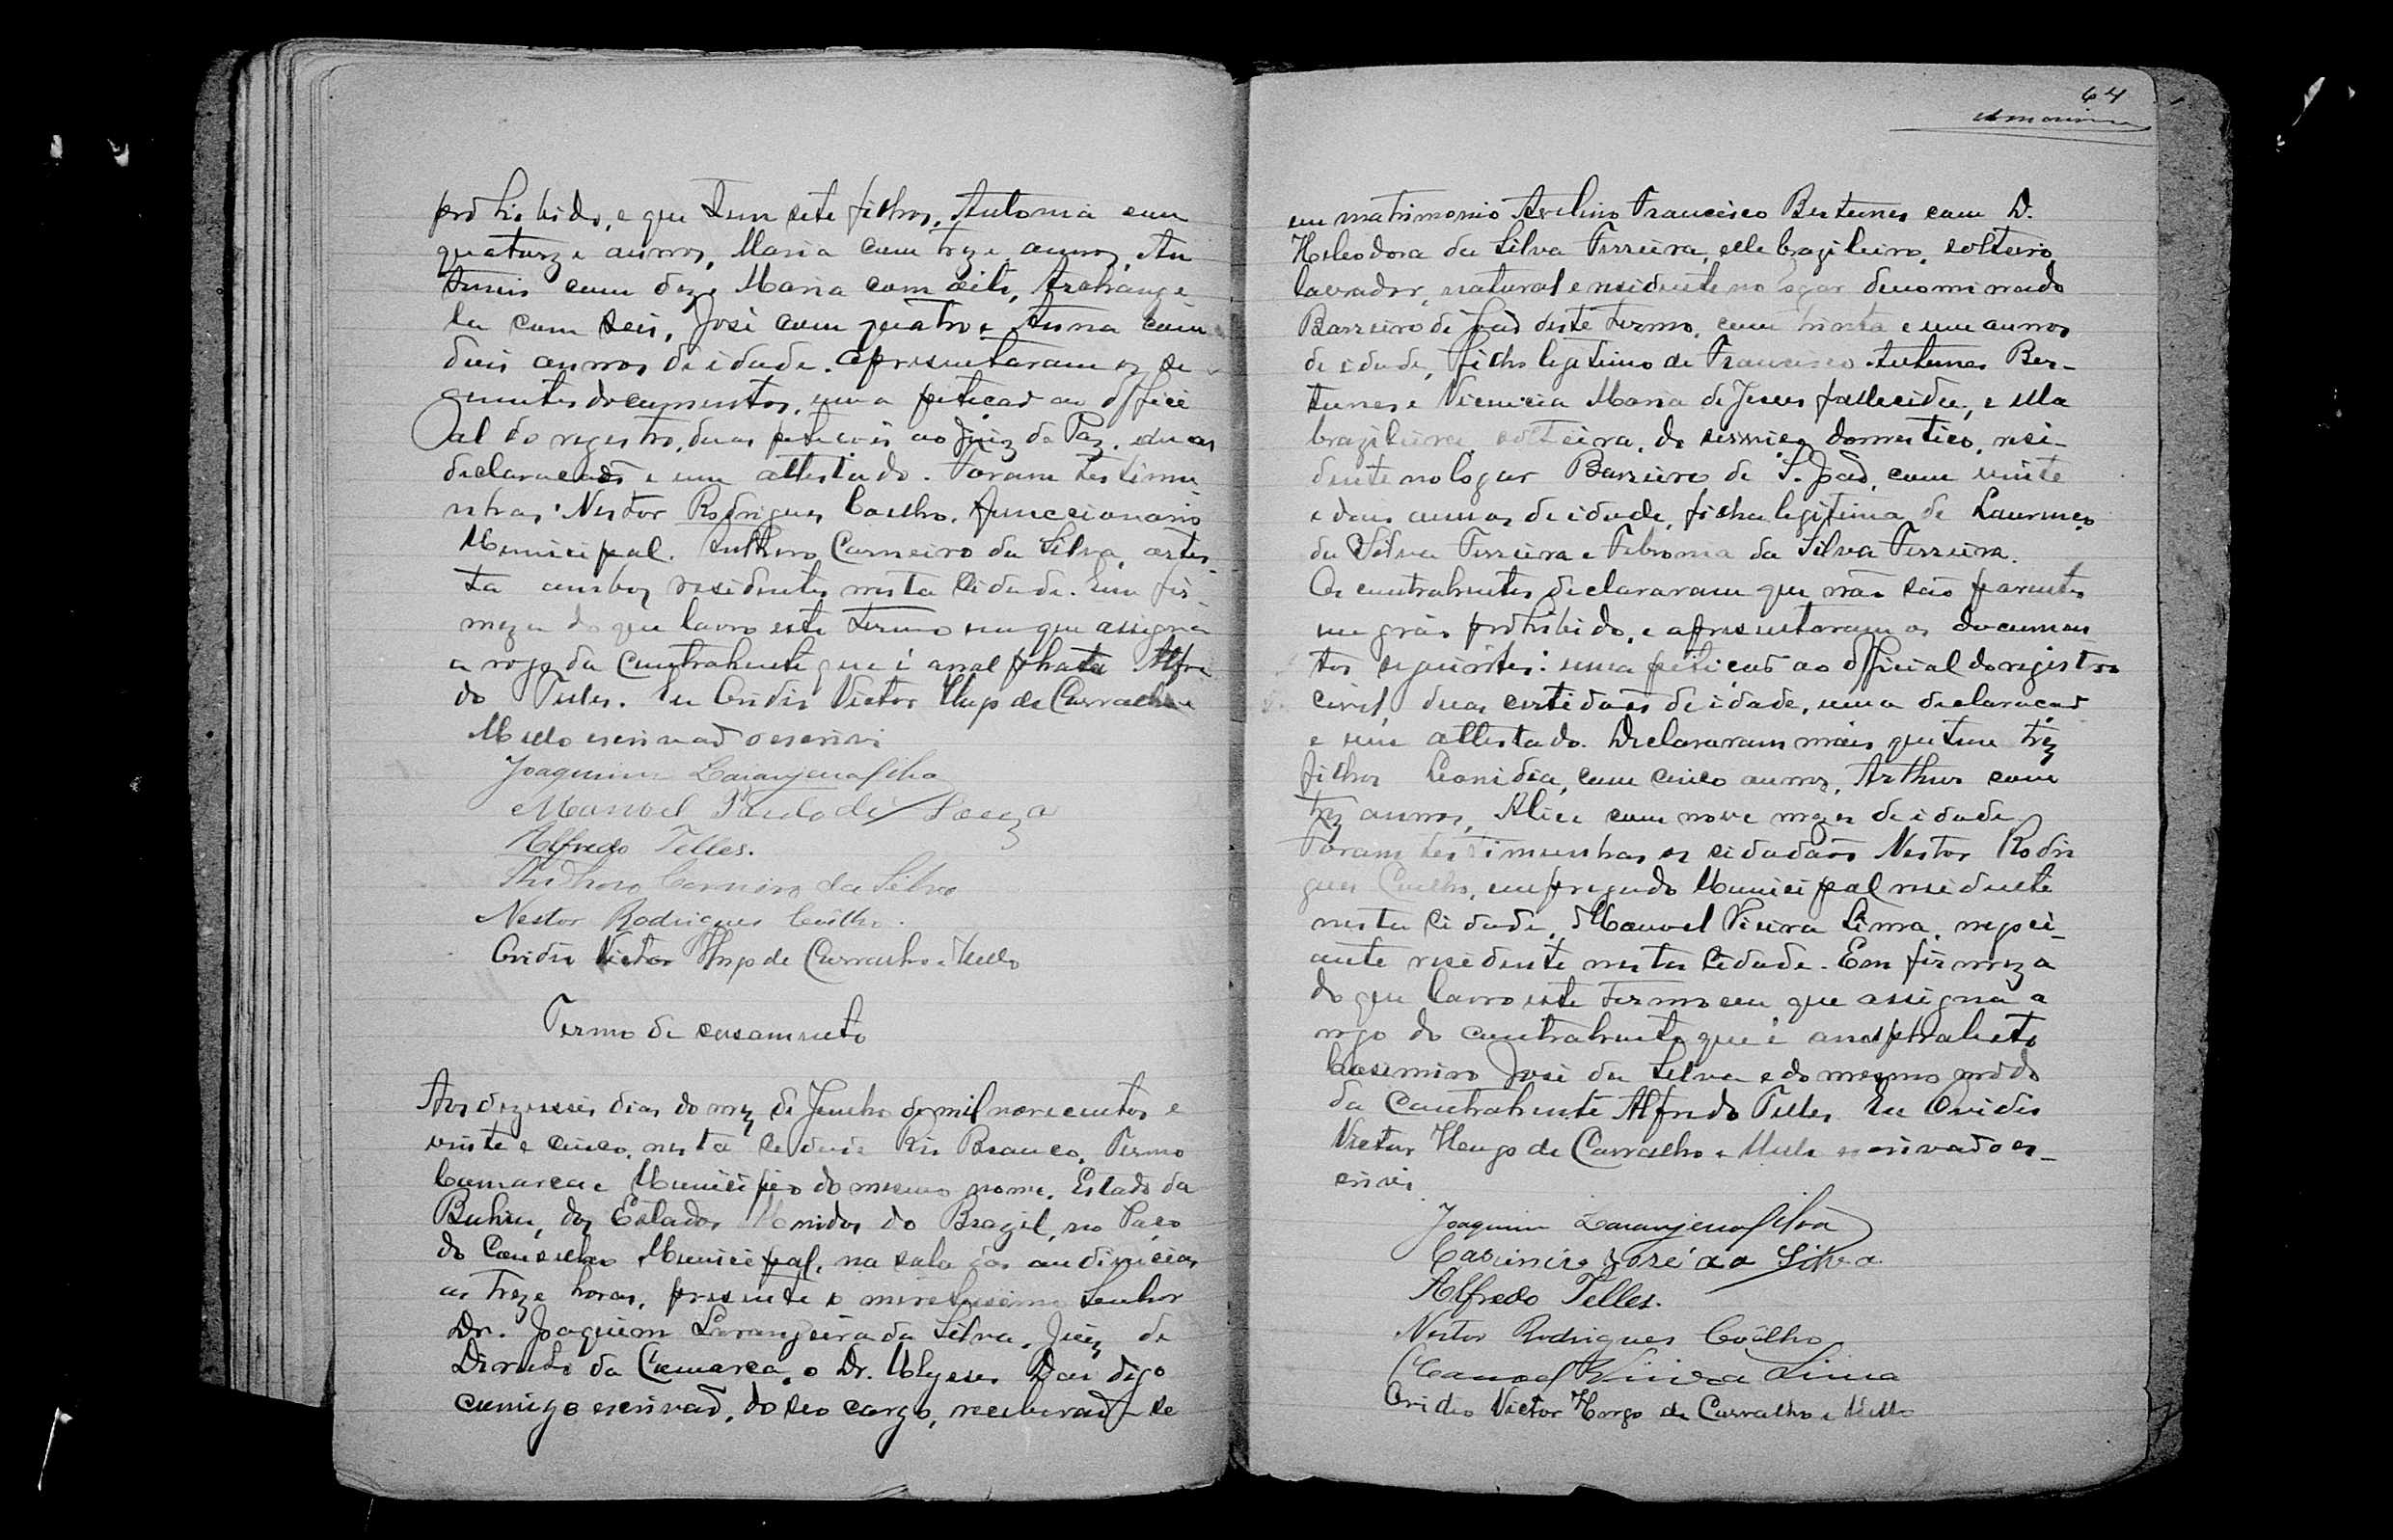 prohibido, e que tem sete filhos, Antonia com
quatorze annos, Maria com treze annos, An
tonio com dez, Maria com oito, Archange
la com seis, José com quatro e Anna com
dois annos de idade. Apresentaram os se
guintes documentos, uma petição ao offici
al do registro, duas petições ao Juiz de Paz, duas
declarações e um attestado. Foram testimu
nhas: Nestor Rodrigues Coelho, funccionario
Municipal. Anthero Carneiro da Silva, artis
ta ambos residentes nesta Cidade. Em fir
meza do que lavro este termo em que assigna
a rogo da Contrahente que é analphabeta Alfre
do Telles. Eu Ovidio Victor Hugo de Carvalho e
Mello escrivão o escrivi
Joaquim Laranjeira Silva
Manoel de Souza
Alfredo Telles.
Anthero Carneiro da Silva
Nestor Rodrigues Coêlho.
Ovidio Victor Hugo de Carvalho e Mello
Termo de casamento
Aos dezesseis dias do mez de Junho de mil novecentos e
vinte e cinco, nesta cidade Rio Branco, Termo
Comarca e Municipio do mesmo nome, Estado da
Bahia, dos Estados Unidos do Brazil, no Paço
do Conselho Municipal, na sala das audiencias
as treze horas, presente o meretissimo Senhor
Dr. Joaquim Laranjeira da Silva, Juiz de
Direito da Comarca, o Dr. Ulysses digo
comigo escrivão, do seo cargo, receberão-se
64
em matrimonio Avelino Francisco Bertunes com D.
Heleodora da Silva Ferreira, elle brazileiro, solteiro,
lavrador, natural e residente no logar denominado
Barreiro de São João deste termo, com trinta e um annos
de idade, filho legitimo de Francisco Antunes Ber-
tunes e Vicencia Maria de Jesus fallecida, e ella
brazileira, solteira, de serviço domestico, resi-
dente no logar Barreiro de S. João, com vinte
e dous annos de idade, filha legitima de Lourenço
da Silva Ferreira e Febronia da Silva Ferreira.
Os contrahentes declararam que não são parentes
em gráo prohibido, e apresentaram os documen
tos seguintes: uma petição ao official do registro
civil, duas certidões de idade, uma declaração
e um attestado. Declararam mais que tem trez
filhos Leonidia, com cinco annos, Arthur com
trez annos, Alice com nove mezes de idade
Foram testimunhas os cidadãos Nestor Rodri
gues Coelho, empregado Municipal residente
nesta Cidade, Manoel Vieira Lima, negoci-
ante residente nesta Cidade. Em firmeza
do que lavro este termo em que assigna a
rogo do contrahente que é analphabeto
Casemiro José da Silva e do mesmo modo
da Contrahente Alfredo Telles. Eu Ovidio
Victor Hugo de Carvalho e Mello escrivão o es-
crivi
Joaquim Laranjeira Silva
Casimiro José da Silva
Alfredo Telles.
Nestor Rodrigues Coêlho
Manoel Vieira Lima
Ovidio Victor Hugo de Carvalho e Mello